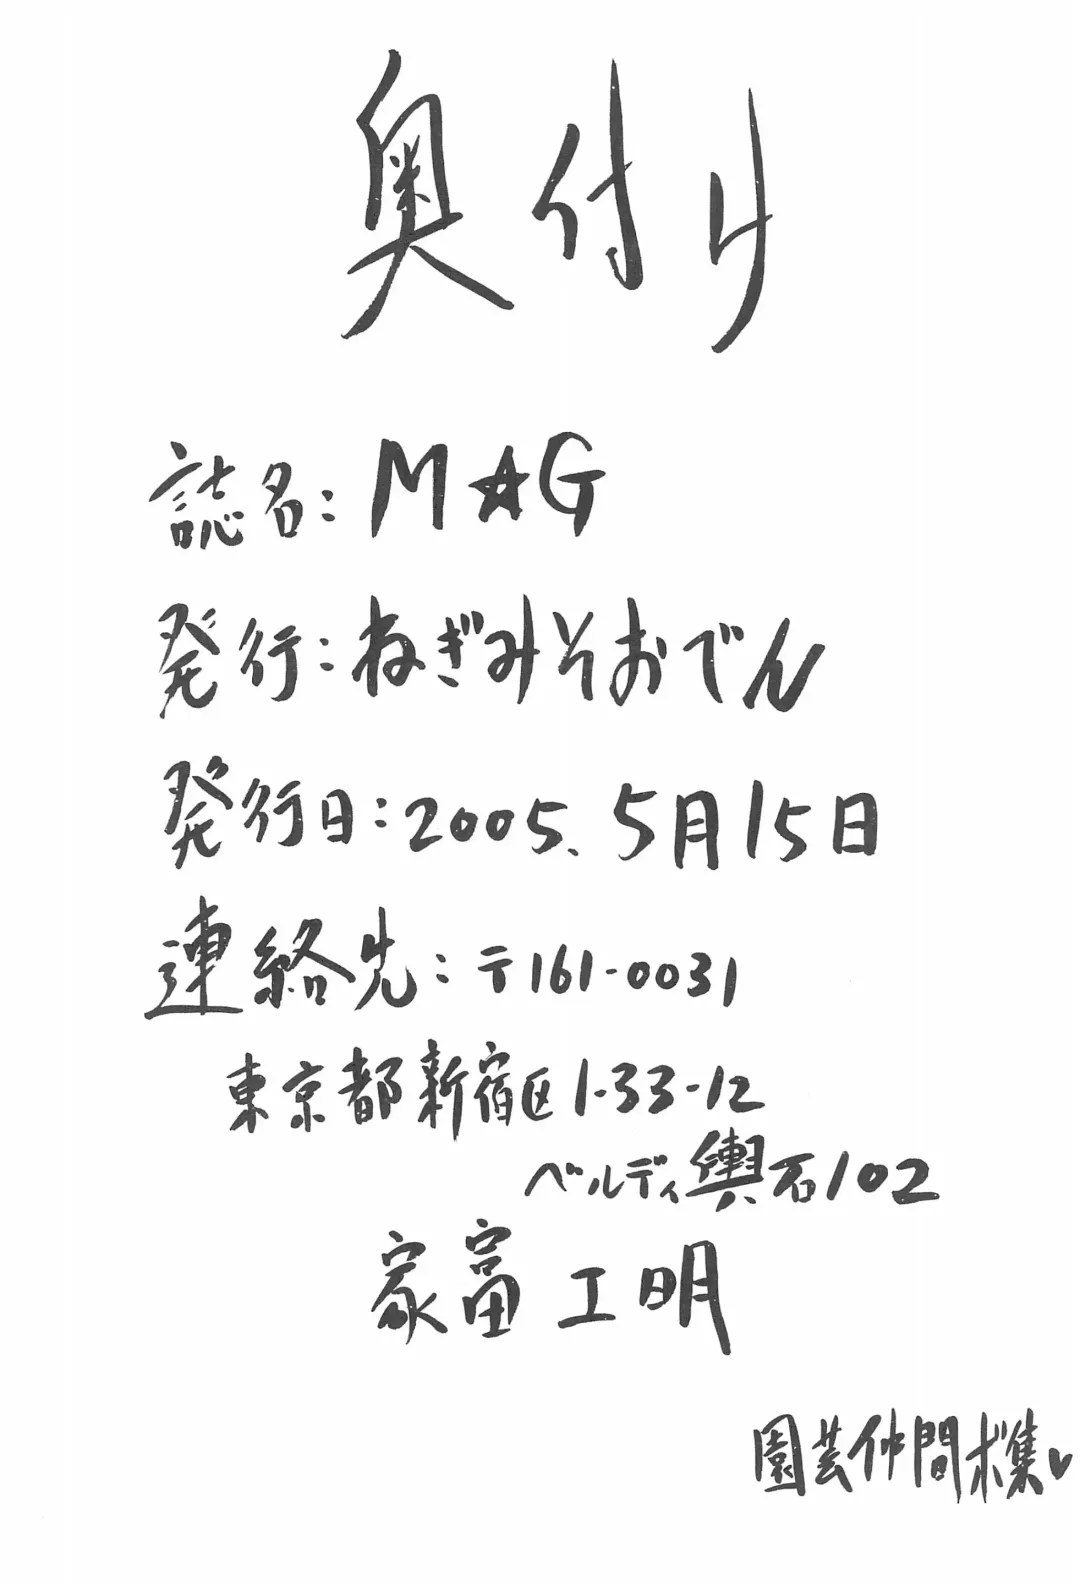 奥付け
誌名：M★G
発行：ねぎみそおでん
発行日：2005. 5月15日
連絡先：〒161-0031
東京都新宿区1-33-12
ベルディ輿石102
家富工明
園芸仲間ボ集♥